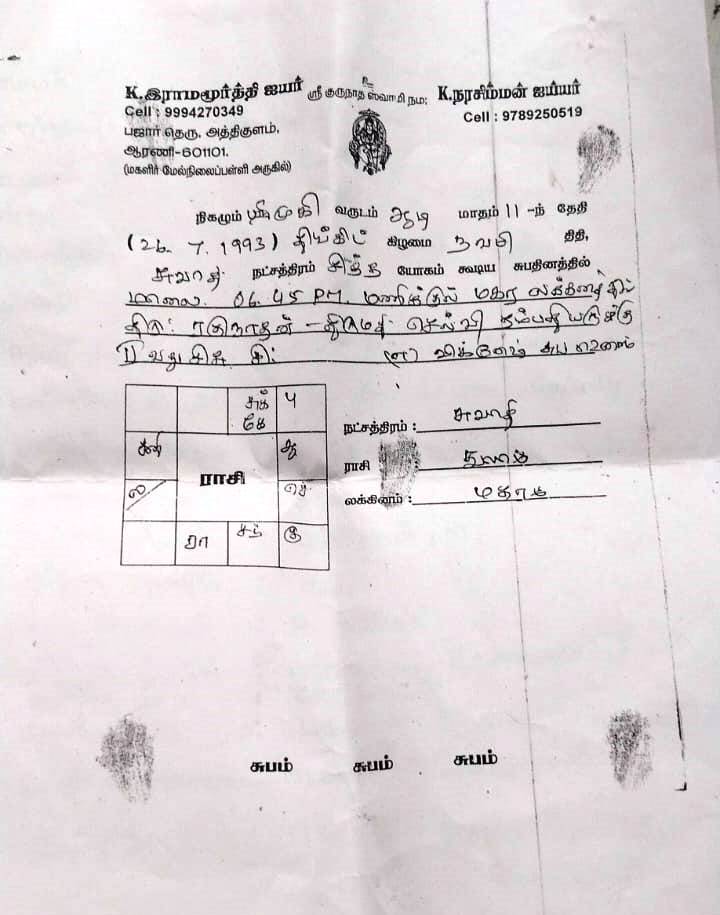 K.இராமமூர்த்தி ஐயர்
ஸ்ரீ குருநாத ஸ்வாமி நம:
K.நரசிம்மன் ஐய்யர்
Cell : 9994270349
Cell : 9789250519
பஜார் தெரு, அத்திகுளம்,
ஆரணி-601101.
(மகளிர் மேல்நிலைப்பள்ளி அருகில்)
நிகழும் ஸ்ரீமுகி வருடம் ஆடி மாதம் 11 -ந் தேதி
(26. 7. 1993) திங்கட் கிழமை நவமி திதி,
சுவாதி நட்சத்திரம் சித்த யோகம் கூடிய சுபதினத்தில்
மாலை. 06.45 PM. மணிக்கு மகர லக்கினத்தில்
திரு: ரகுநாதன் - திருமதி செல்வி தம்பதியருக்கு
II வது (எ) விக்னேஷ் சுப
சுக் கே
பு
சனி
ராசி
சூ
ல
செ
ரா
சந்
கு
நட்சத்திரம் : சுவாதி
ராசி துலாம்
லக்கினம் : மகரம்
சுபம் சுபம் சுபம்